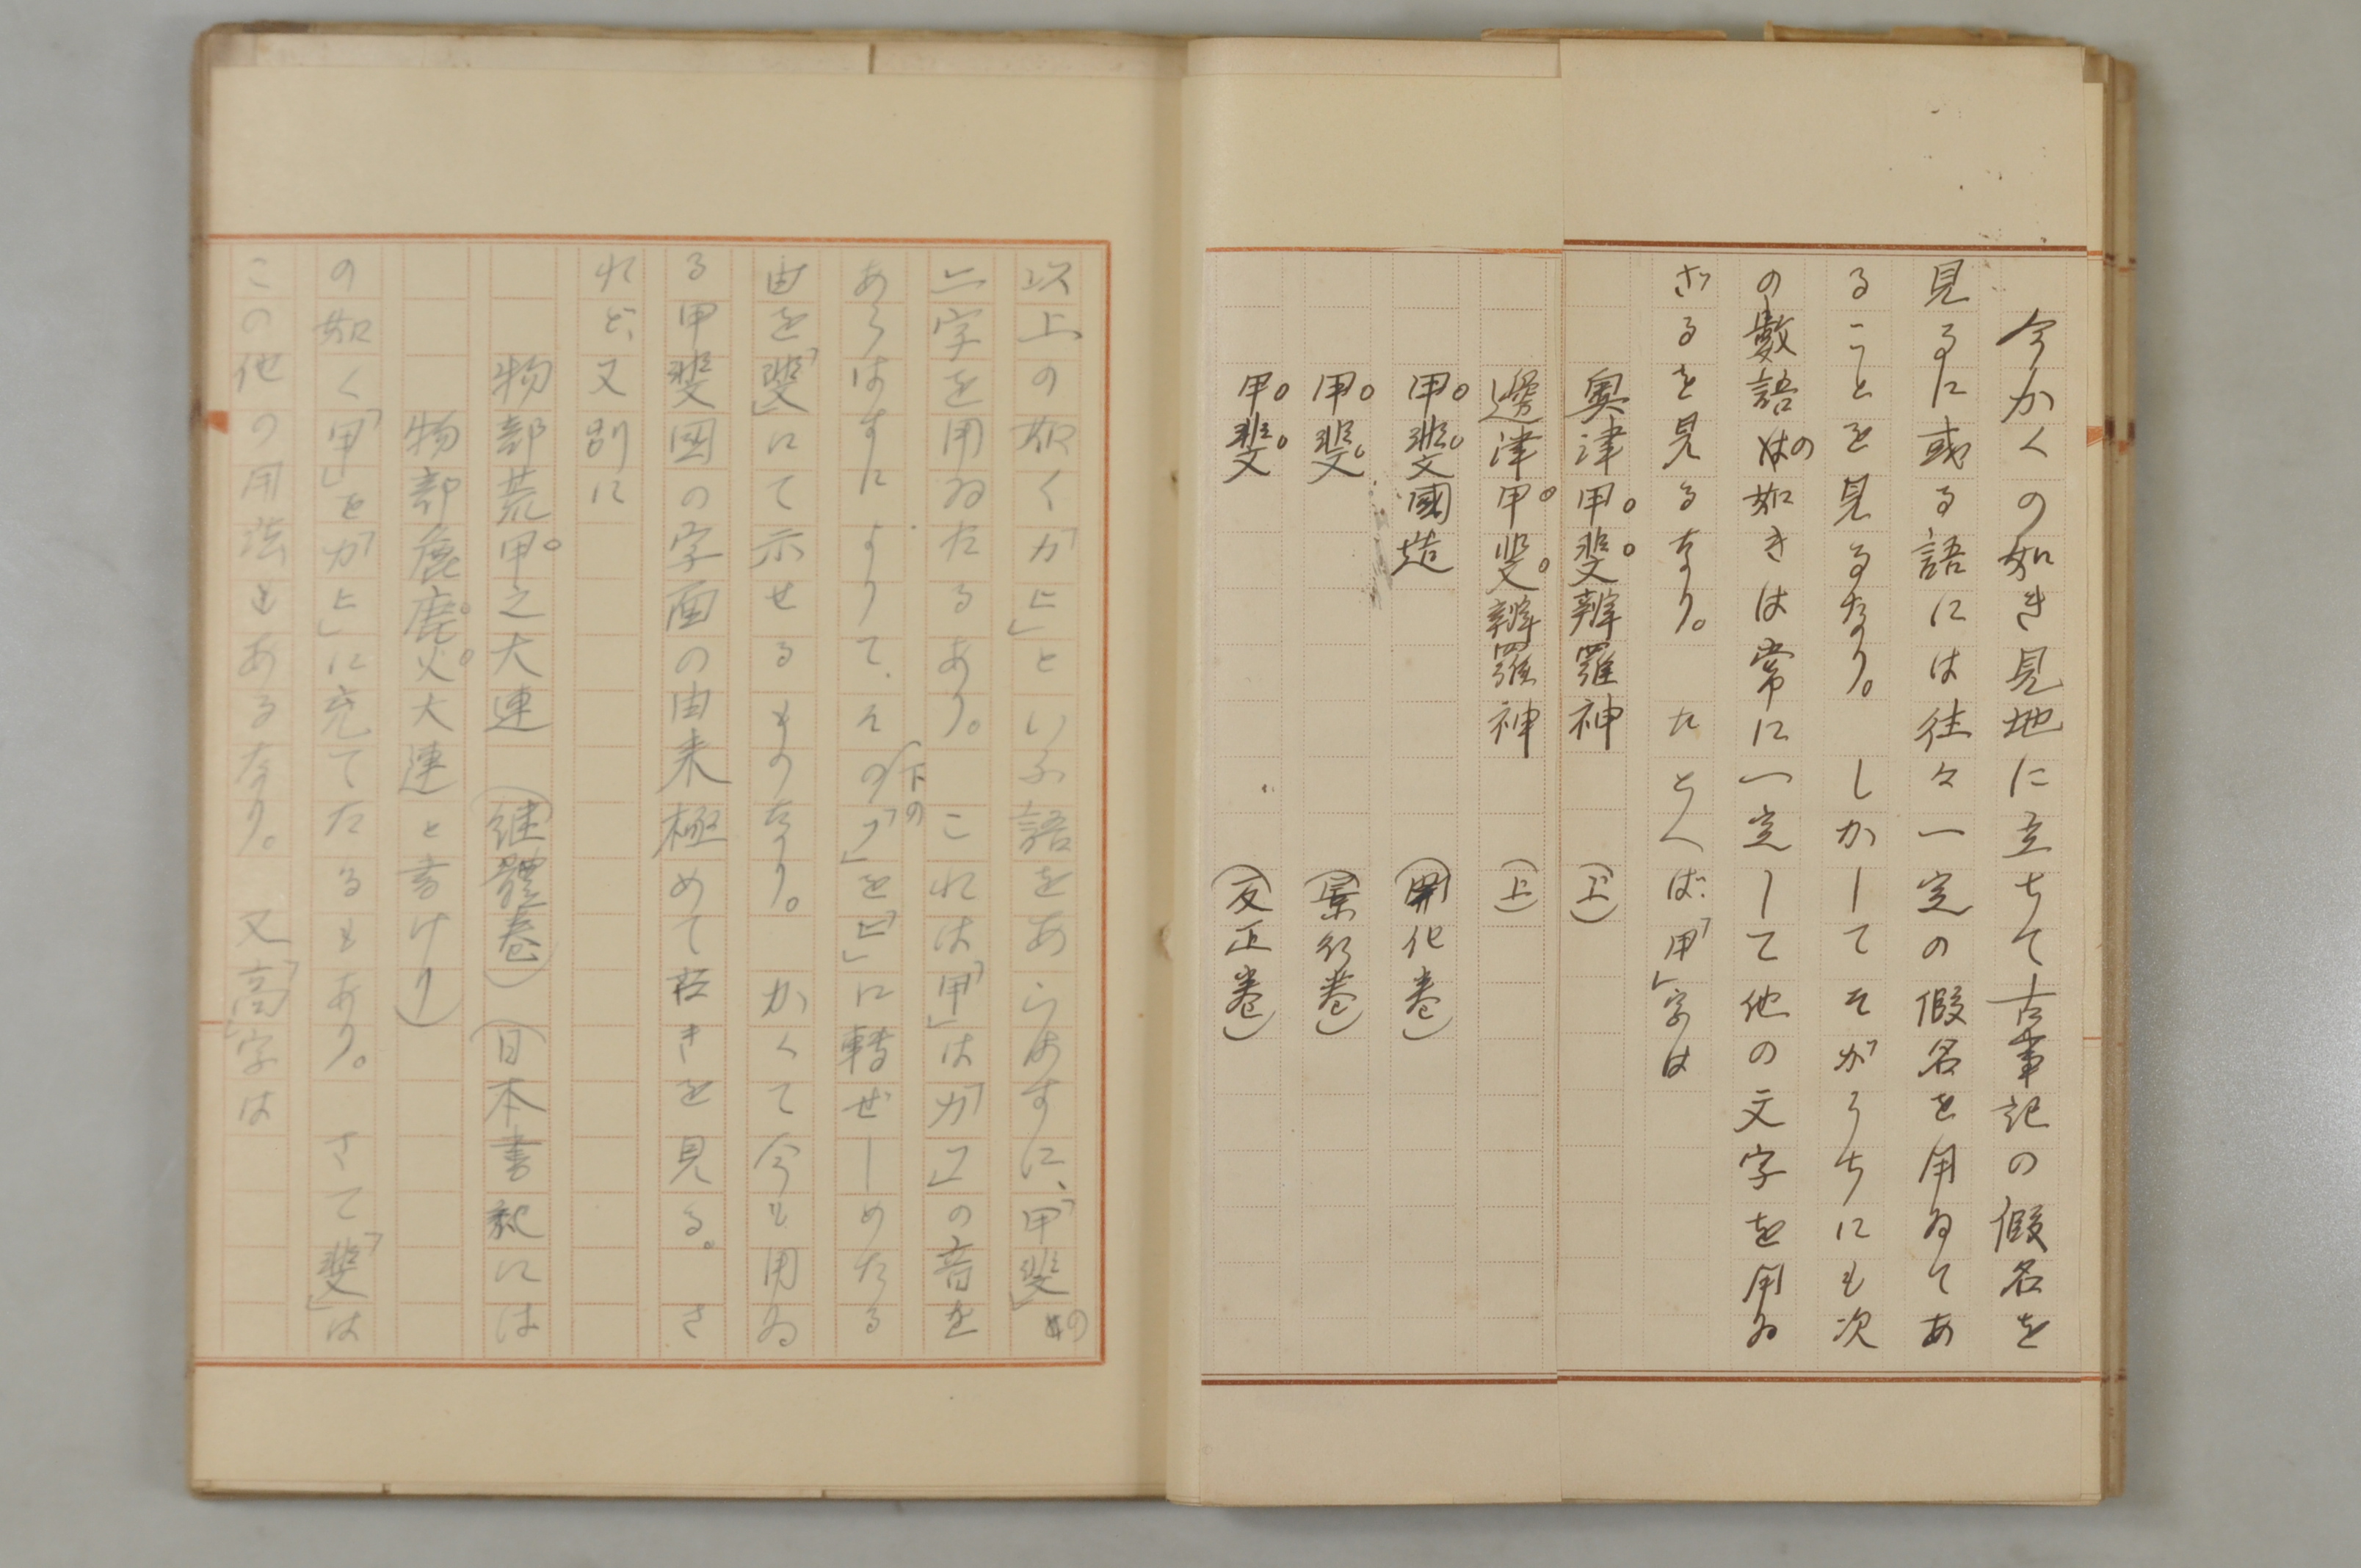 今かくの如き見地に立ちて古事記の假名を
見るに或る語には往々一定の假名を用ゐてあ
ることを見るなり。しかしてそが「うちにも次
の數語の如きは常に一定して他の文字を用ゐ
ざるを見るなり。たとへば「甲」字は
奥津甲斐辨羅神(上)
邊津甲斐辨羅神(上)
甲斐國造(開化卷)
甲斐(景行卷)
甲斐(反正卷)
以上の如く「カヒ」といふ語をあらはすに、「甲斐」の
二字を用ゐたるあり。これは「甲」は「カフ」の音を
あらはすによりて、その(下の)「フ」を「ヒ」に轉ぜしめたる
由を「斐」にて示せるものなり。かくて今も用ゐ
る甲斐國の字面の由来極めて古きを見る。さ
れど、又別に
物部荒甲之大連(継體卷)(日本書紀には
物部麁鹿火大連と書けり)
の如く「甲」を「カヒ」に充てたるもあり。さて「斐」は
この他の用法もあるなり。又「高」字は